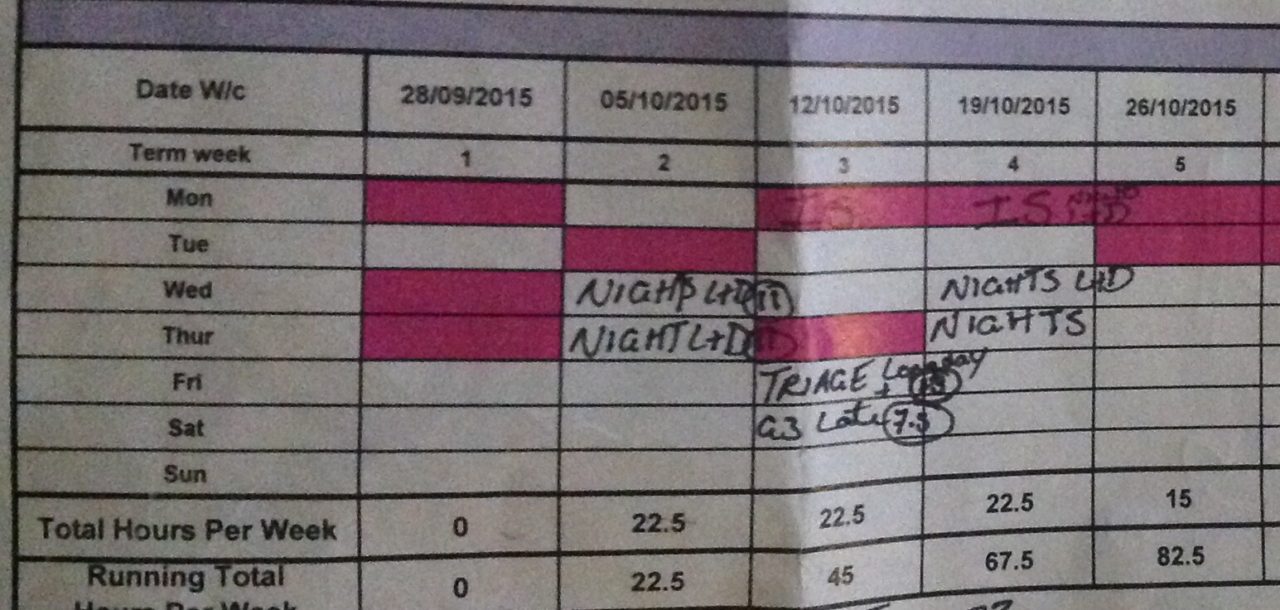 Date W/c 28/09/2015 05/10/2015 12/10/2015 19/10/2015 26/10/2015
Term week 1 2 3 4 5
Mon IS IS
Tue
Wed NIGHTS L+D 11 NIGHTS L+D
Thur NIGHT L+D NIGHTS
Fri TRIAGE Long day
Sat G3 Late 7.5
Sun
Total Hours Per Week 0 22.5 22.5 22.5 15
Running Total 0 22.5 45 67.5 82.5
Hours Per Week